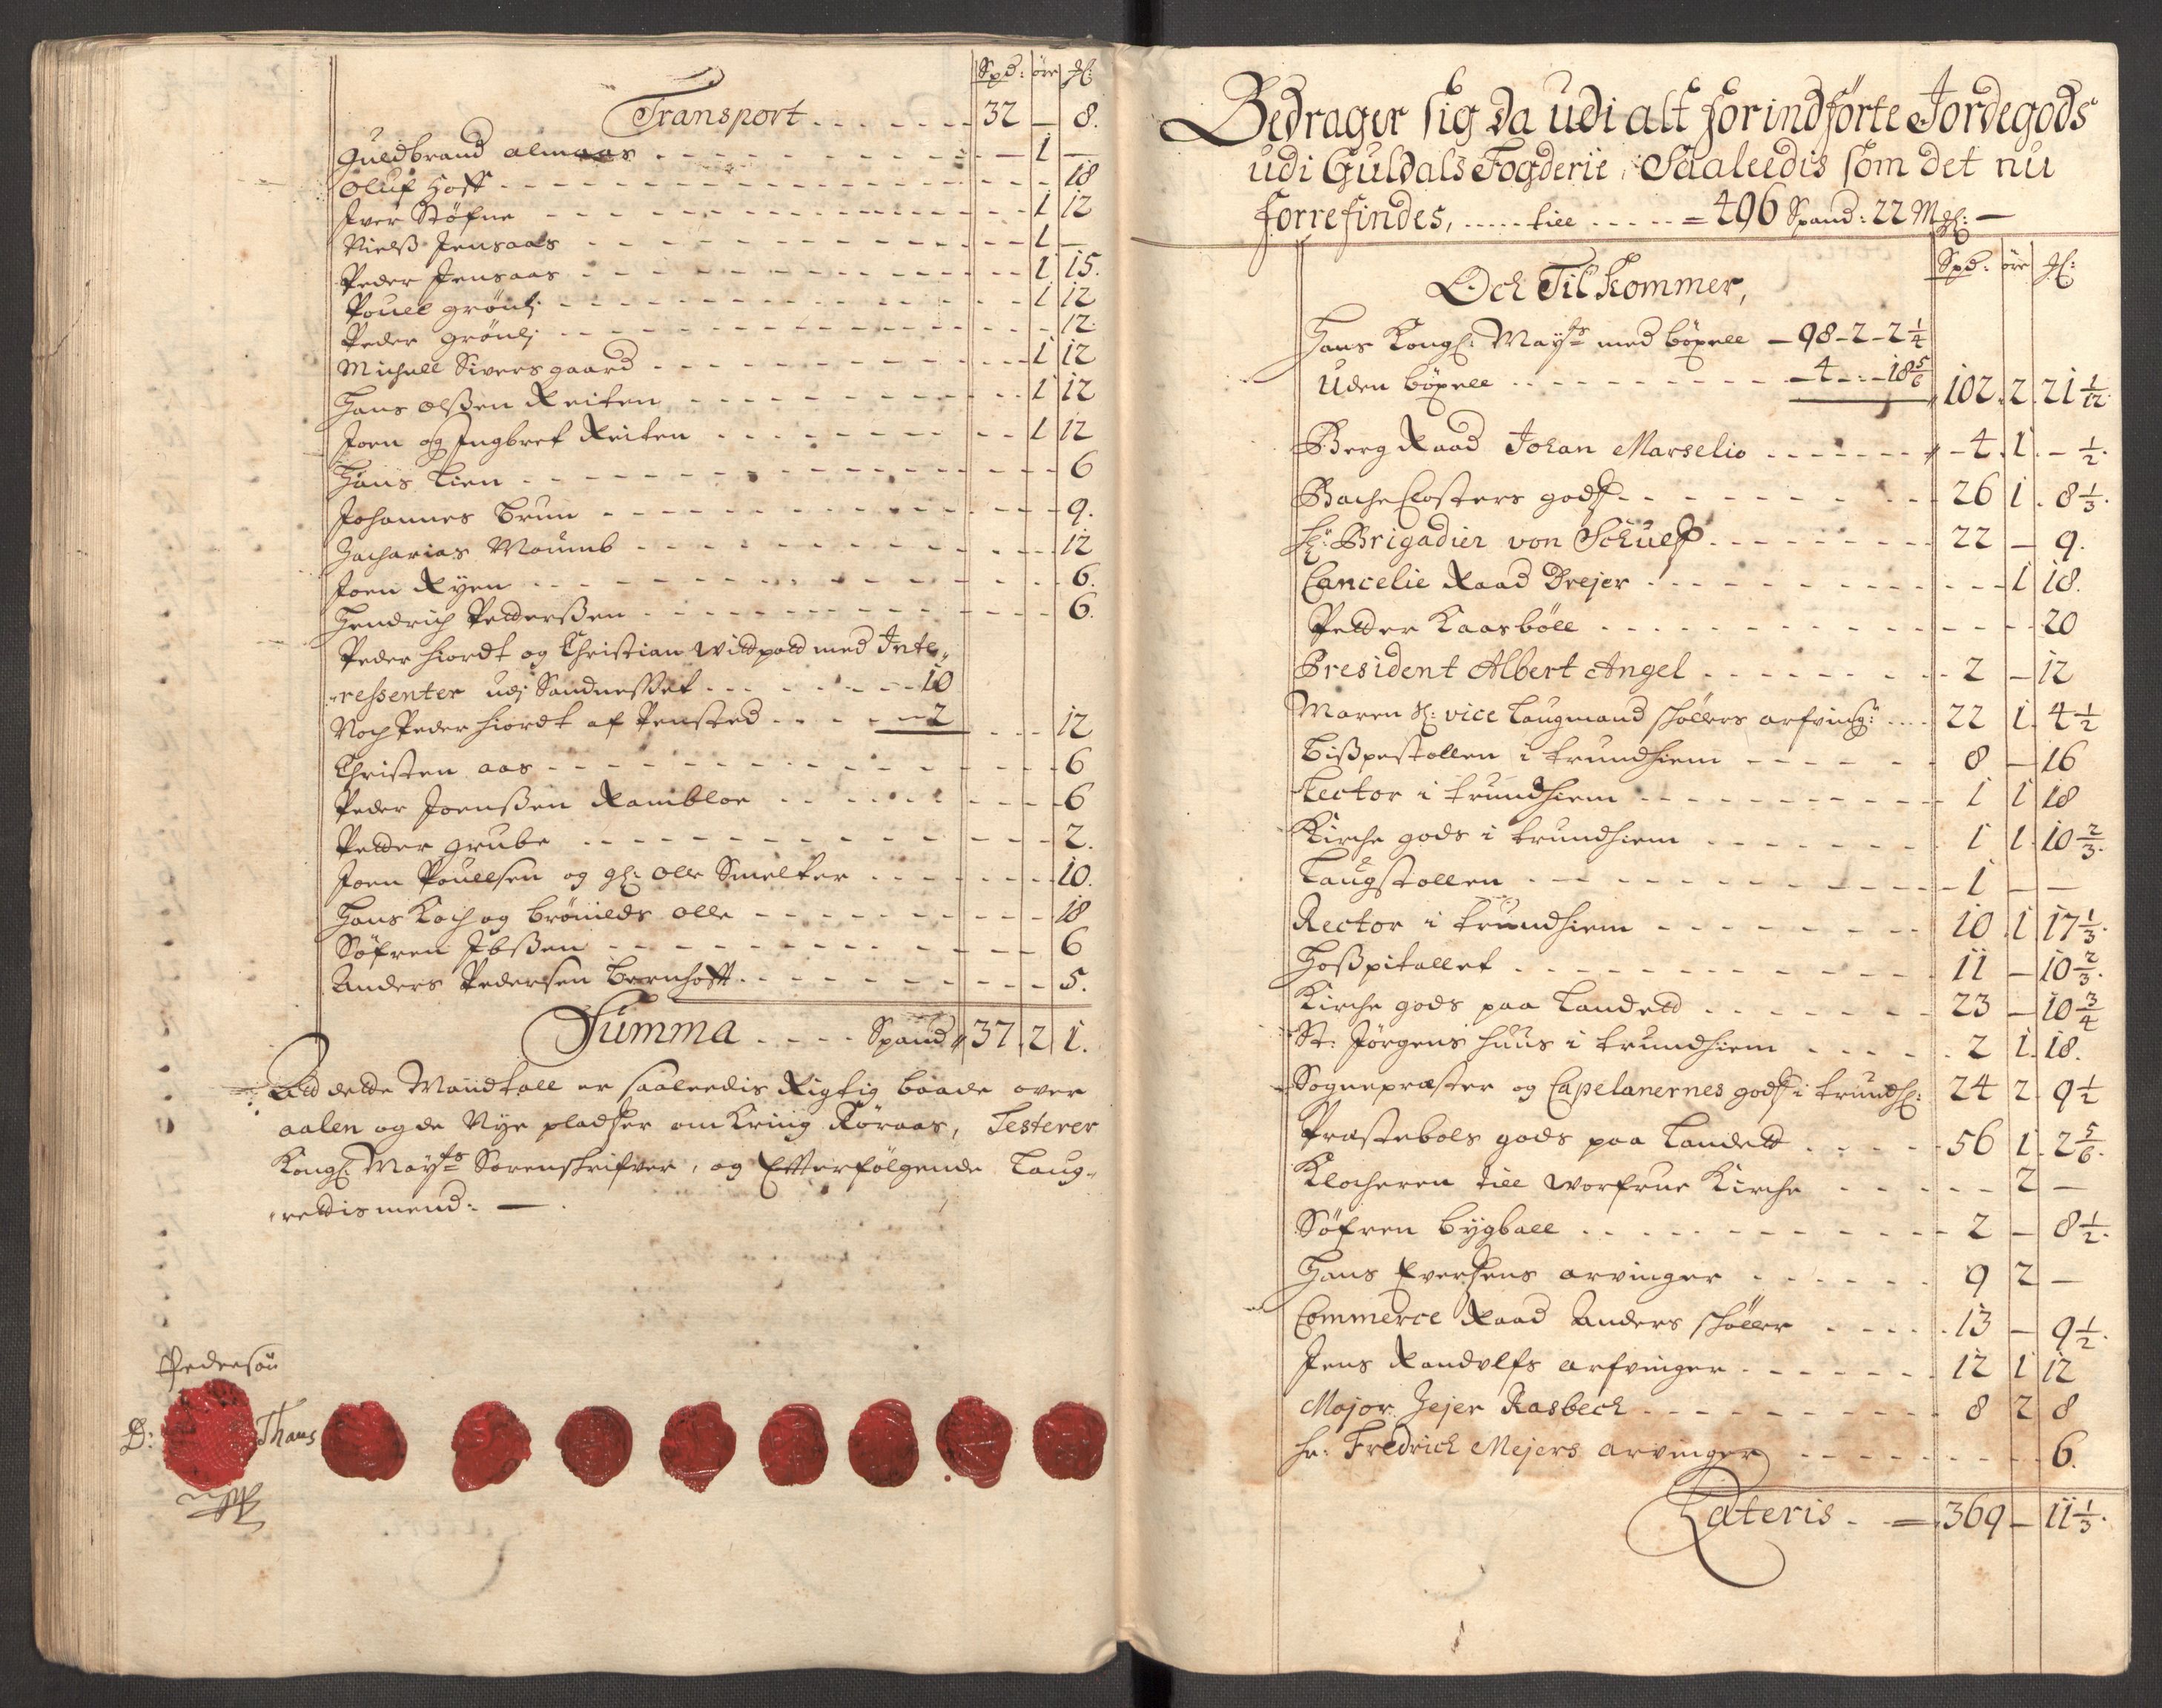 Spd: öre Ml:
Transport . . . . . . . 32 — 8.
Guldbrand almaas . . . — 1 —
Oluf Hoff . . . 18
Iver Støfne . . . 1 12
Nielß Jensaas . . . 1 —
Peder Jensaas . . . 1 15.
Pouel Grönli . . . 1 12
Peder Grönli . . . 12.
Michell Sivers gaard . . . 1 12
Hans Olßen Reiten . . . 1 12
Joen og Ingbret Reiten . . . 1 12
Hans Lien . . . 6
Johannes Brun . . . 9.
Zacharias Moumb . . . 12
Joen Ryen . . . 6.
Hendrich Pedderßen . . . 6.
Peder Hiordt og Christian Wildpatd med Inte„
„ressenter udj Sandnesset . . . 10
Noch Peder Hiordt af Pensted . . . 2 . . . 12
Christen aas . . . 6
Peder Joenßen Rambloe . . . 6
Pedder Grube . . . 2.
Joen Pouelsen og gl: Olle Smelter . . . 10.
Hans Koch og Brönilds Olle . . . 18
Söfren Ibßen . . . 6
Anders Pedersen Bernhoft . . . 5.
Summa . . . . Spand 37. 2 1.
At dette Mandtall er saaledis Rigtig baade over
aalen og de Nye pladser omkring Röraas, Testerer
Kongl: Mayts Sorenskrifver, og Efterfölgende Laug„
„rettismend: —
Pedersön
D: Thaus
Bedrager sig da udi alt forindförte Jordegods
udi Guldals Fogderie, Saaledis som det nu
forrefindes, . . . . . till . . . . . = 496 Spand: 22 Ml: —
Och Til Kommer, Spd: öre Ml:
Hans Kongl: Mayts med böxell — 98 - 2 - 2 1/4
Uden böxell . . . — 4 - : - 18 5/6 102. 2. 21 1/12
Berg Raad Johan Marselio . . . — 4. 1. — 1/2.
Bache Closters gods . . . 26 1. 8 1/3.
Hr: Brigadier von Schults . . . 22 — 9.
Cancelie Raad Drejer . . . 1 18.
Petter Kaasböll . . . 20
President Albert Angel . . . 2 — 12
Maren Sl: vice Laugmand Schöllers arfving: . . . 22 1. 4 1/2
Bißpestollen i trundhiem . . . 8 — 16
Lector i trundhiem . . . 1 1 18
Kirche gods i trundhiem . . . 1 1. 10 2/3.
Laugstollen . . . 1 — —
Rector i trundhiem . . . 10 1 17 1/3.
Hoßpitallet . . . 11 — 10 2/3.
Kirche gods paa Landett . . . 23 — 10 3/4
St: Jörgens huus i trundhiem . . . 2 1. 18.
Sognepræster og Capelanernes gods i trundh: 24 2. 9 1/2
Præstebols gods paa Landett . . . 56 1. 2 5/6.
Klocheren till worfrue Kirche . . . 2 —
Söfren Bygball . . . 2 — 8 1/2.
Hans Evertsens arvinger . . . 9 2 —
Commerce Raad Anders Schöller . . . 13 — 9 1/2.
Jens Randulfs arfvinger . . . 12 1 12
Major Jejer Rasbech . . . 8 2 8
hr: Fredrich Mejers arvinger . . . 6.
Lateris . . = 369 — 11 1/3.